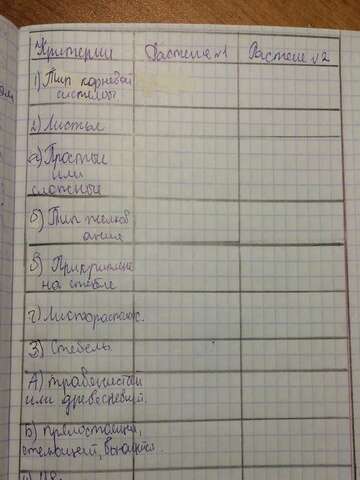 Критерии Растение №1 Растение №2
1) Тип корневой
системы
2) Листья
а) Простые
или
сложные
б) Тип жилков
ания
в) Прикрепление
на стебле
г) Листорасполож.
3) Стебель
А) травянистый
или древесневый.
Б) прямостоящий,
стелющийся, вьющийся.